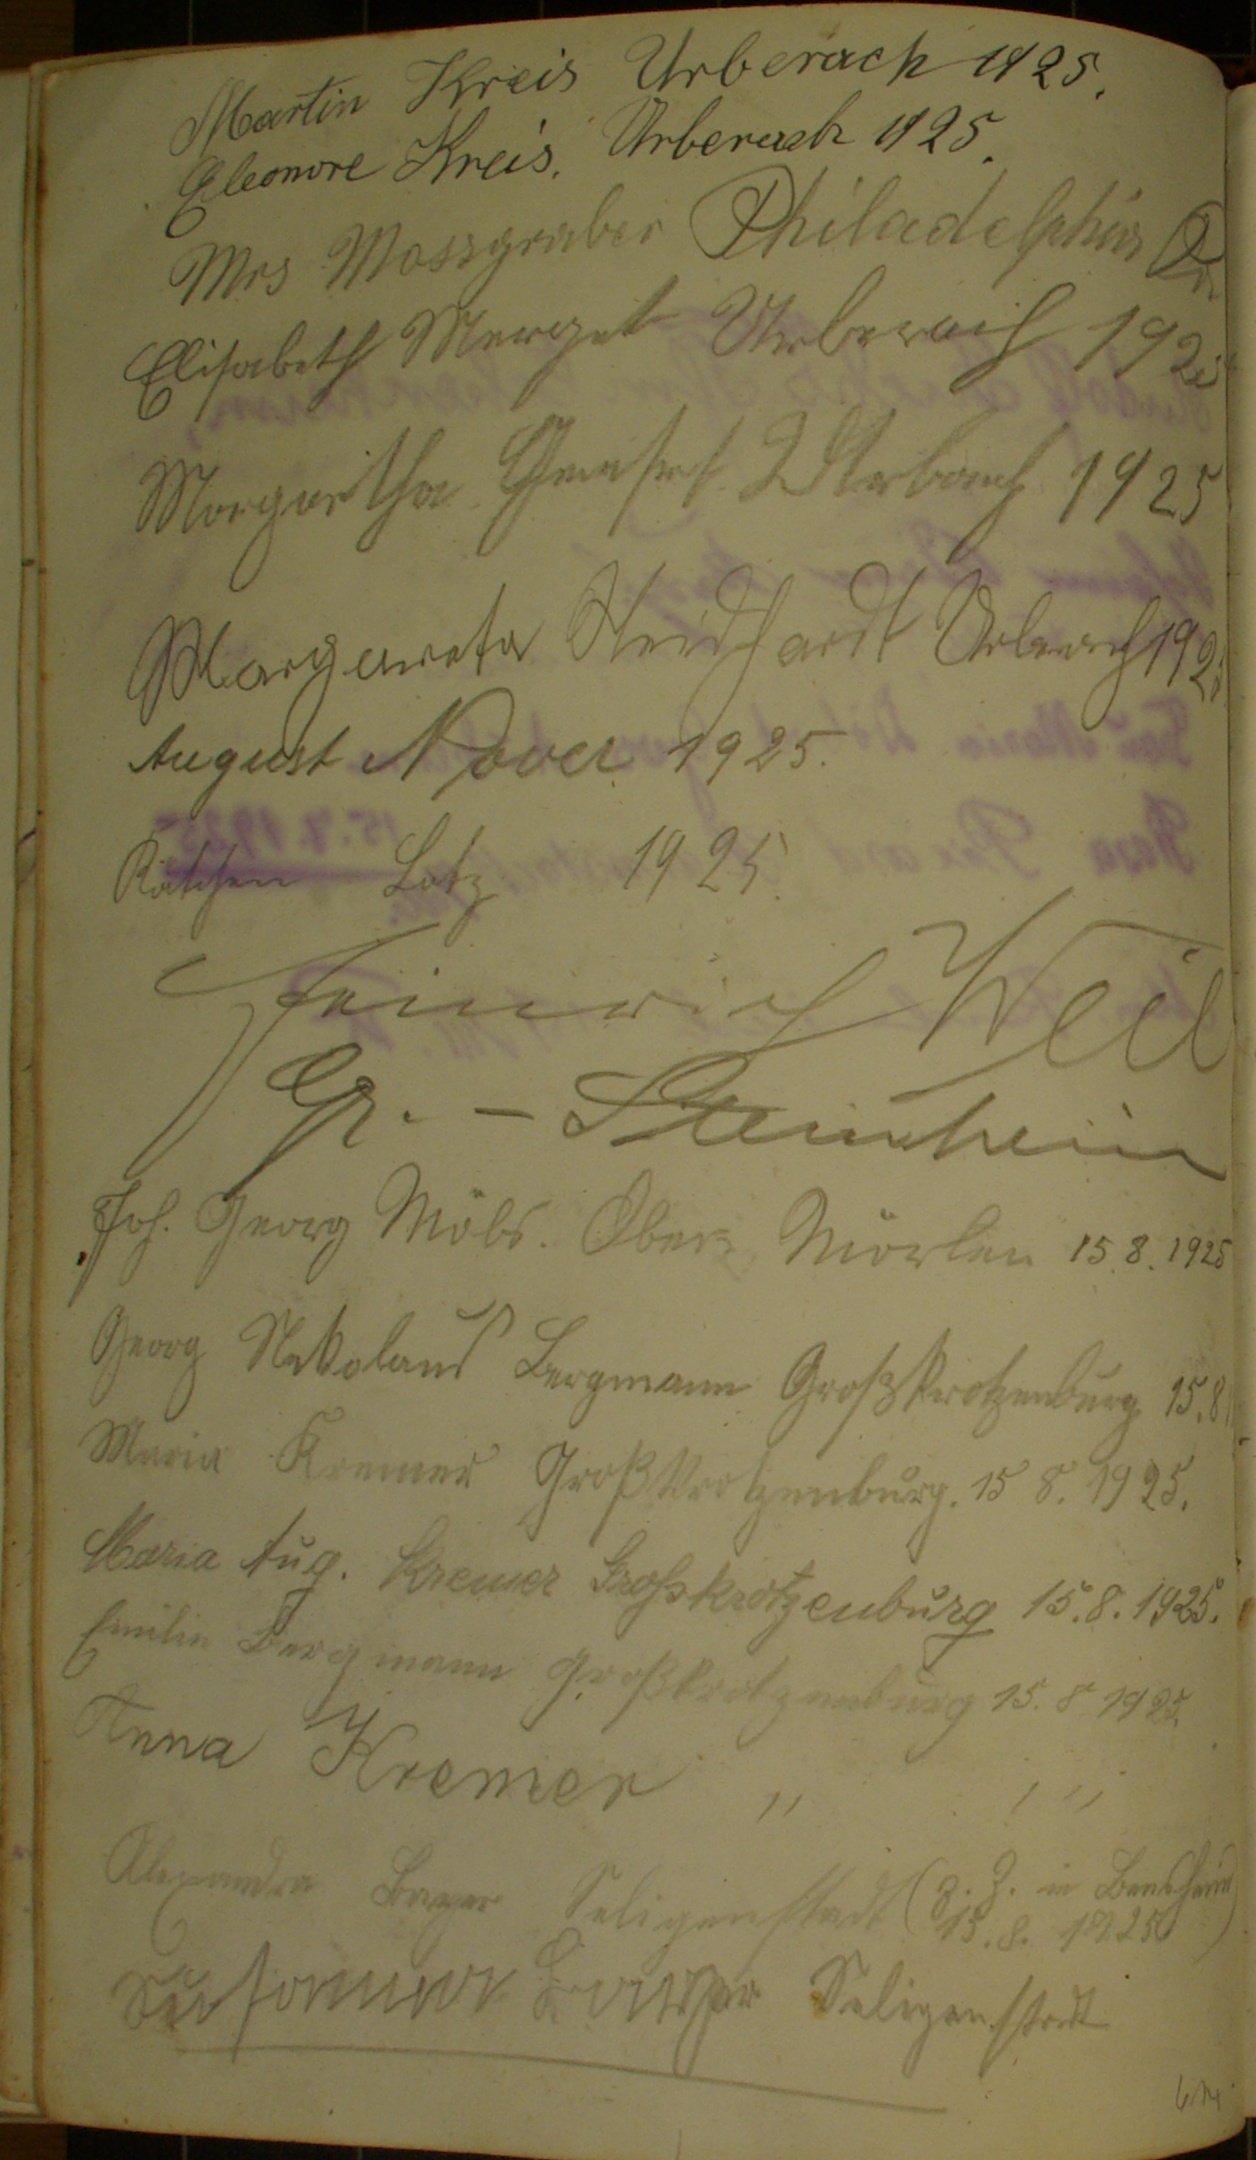 Martin Kreis Urberach 1925.
Eleonore Kreis. Urberach 1925.
Mrs Massgraber Philadelphia Pa
Elisabeth Merget Urberach 1925
Margaritha Urberach 1925
Margareta Neidhardt Urberach 1925
August 1925.
Kätchen Lotz 1925
Heinrich Weil
Gr. - Steinheim
Joh. Georg Möbs. Ober Mörlen 15.8.1925
Georg Nikolaus Bergmann Großkrotzenburg 15.8.
Maria Kremer Großkrotzenburg. 15 8. 1925.
Maria Aug. Kremer Grosskrotzenburg 15.8.1925.
Emilie Bergmann Großkrotzenburg 15.8 1925.
Anna Kremer " "
Alexandra Beyer Seligenstadt (z. Z. in Bensheim)
15.8. 1925
Susanna Seligenstadt